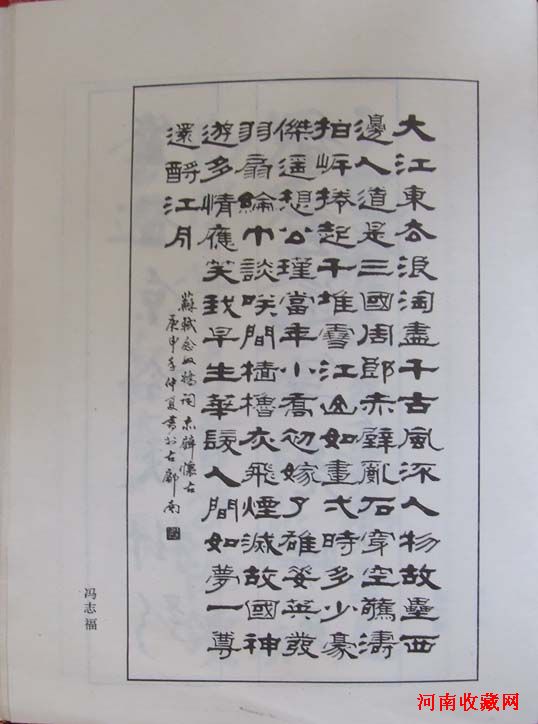 大江東去浪淘盡千古風流人物故壘西
邊人道是三國周郎赤壁亂石穿空驚濤
拍岸捲起千堆雪江山如畫弌時多少豪
傑遙想公瑾當年小喬初嫁了雄姿英發
羽扇綸巾談咲間檣櫓灰飛煙滅故國神
遊多情應笑我早生華髮人間如夢一尊
還酹江月
蘇軾念奴嬌詞赤壁懷古
庚申年仲夏書於古鄘南
冯志福
河南收藏网